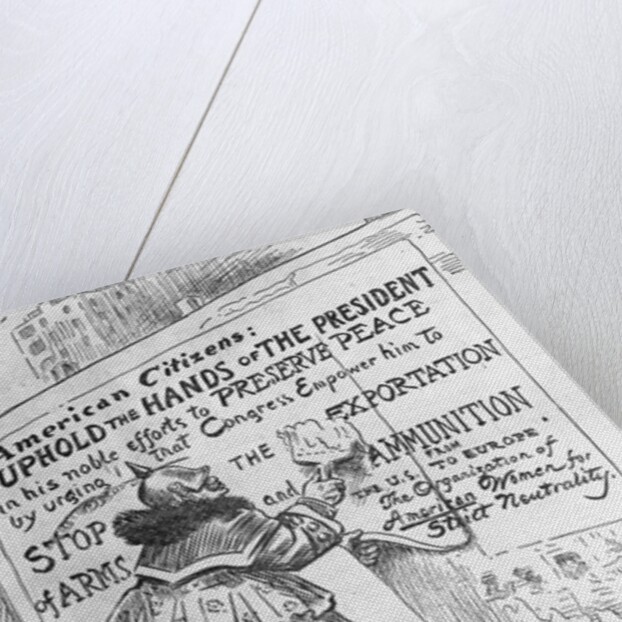 American Citizens:
UPHOLD THE HANDS OF THE PRESIDENT
in his noble efforts to PRESERVE PEACE
by urging that Congress Empower him to
STOP THE EXPORTATION
of ARMS and AMMUNITION.
THE U.S. FROM TO EUROPE
The Organization of
American Women for
Strict Neutrality.